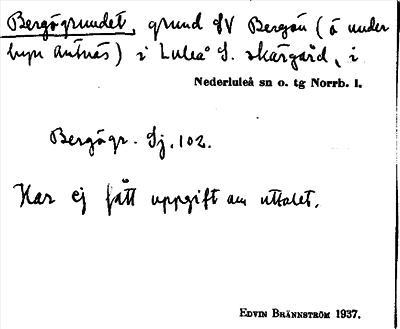 Bergögrundet, grund SV Bergön (ö under
byn Antnäs) i Luleå S. skärgård, i
Nederluleå sn o. tg Norrb. l.
Bergögr. Sj. 102.
Har ej fått uppgift om uttalet.
EDVIN BRÄNNSTRÖM 1937.